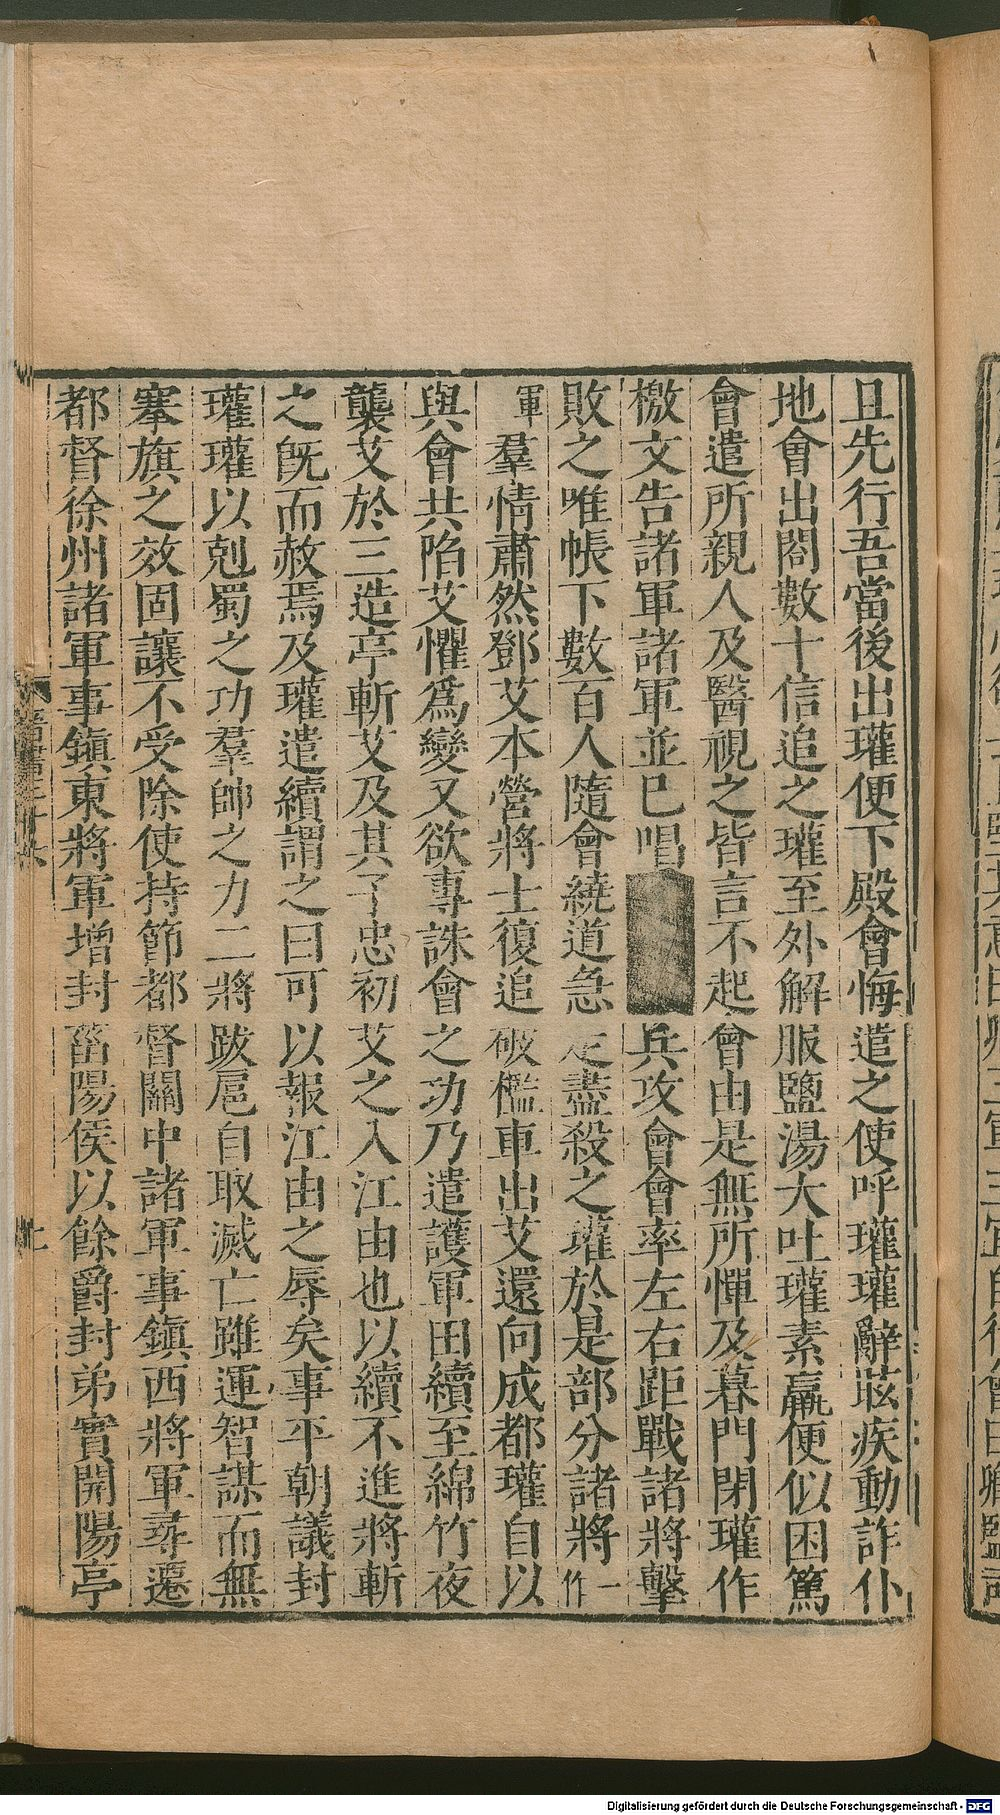 且先行吾當後出瓘便下殿會悔遣之使呼瓘瓘辭眩疾動詐仆
地會出閤數十信追之瓘至外解服鹽湯大吐瓘素羸便似困篤
會遣所親人及醫視之皆言不起會由是無所憚及暮門閉瓘作
檄文告諸軍諸軍並已唱兵攻會會率左右距戰諸將擊
敗之唯帳下數百人隨會繞道急走盡殺之瓘於是部分諸將一作
軍羣情肅然鄧艾本營將士復追破檻車出艾還向成都瓘自以
與會共陷艾懼爲變又欲專誅會之功乃遣護軍田續至綿竹夜
襲艾於三造亭斬艾及其子忠初艾之入江由也以續不進將斬
之旣而赦焉及瓘遣續謂之曰可以報江由之辱矣事平朝議封
瓘瓘以剋蜀之功羣帥之力二將跋扈自取滅亡雖運智謀而無
搴旗之效固讓不受除使持節都督關中諸軍事鎭西將軍尋遷
都督徐州諸軍事鎭東將軍增封菑陽侯以餘爵封弟實開陽亭
Digitalisierung gefördert durch die Deutsche Forschungsgemeinschaft - DFG